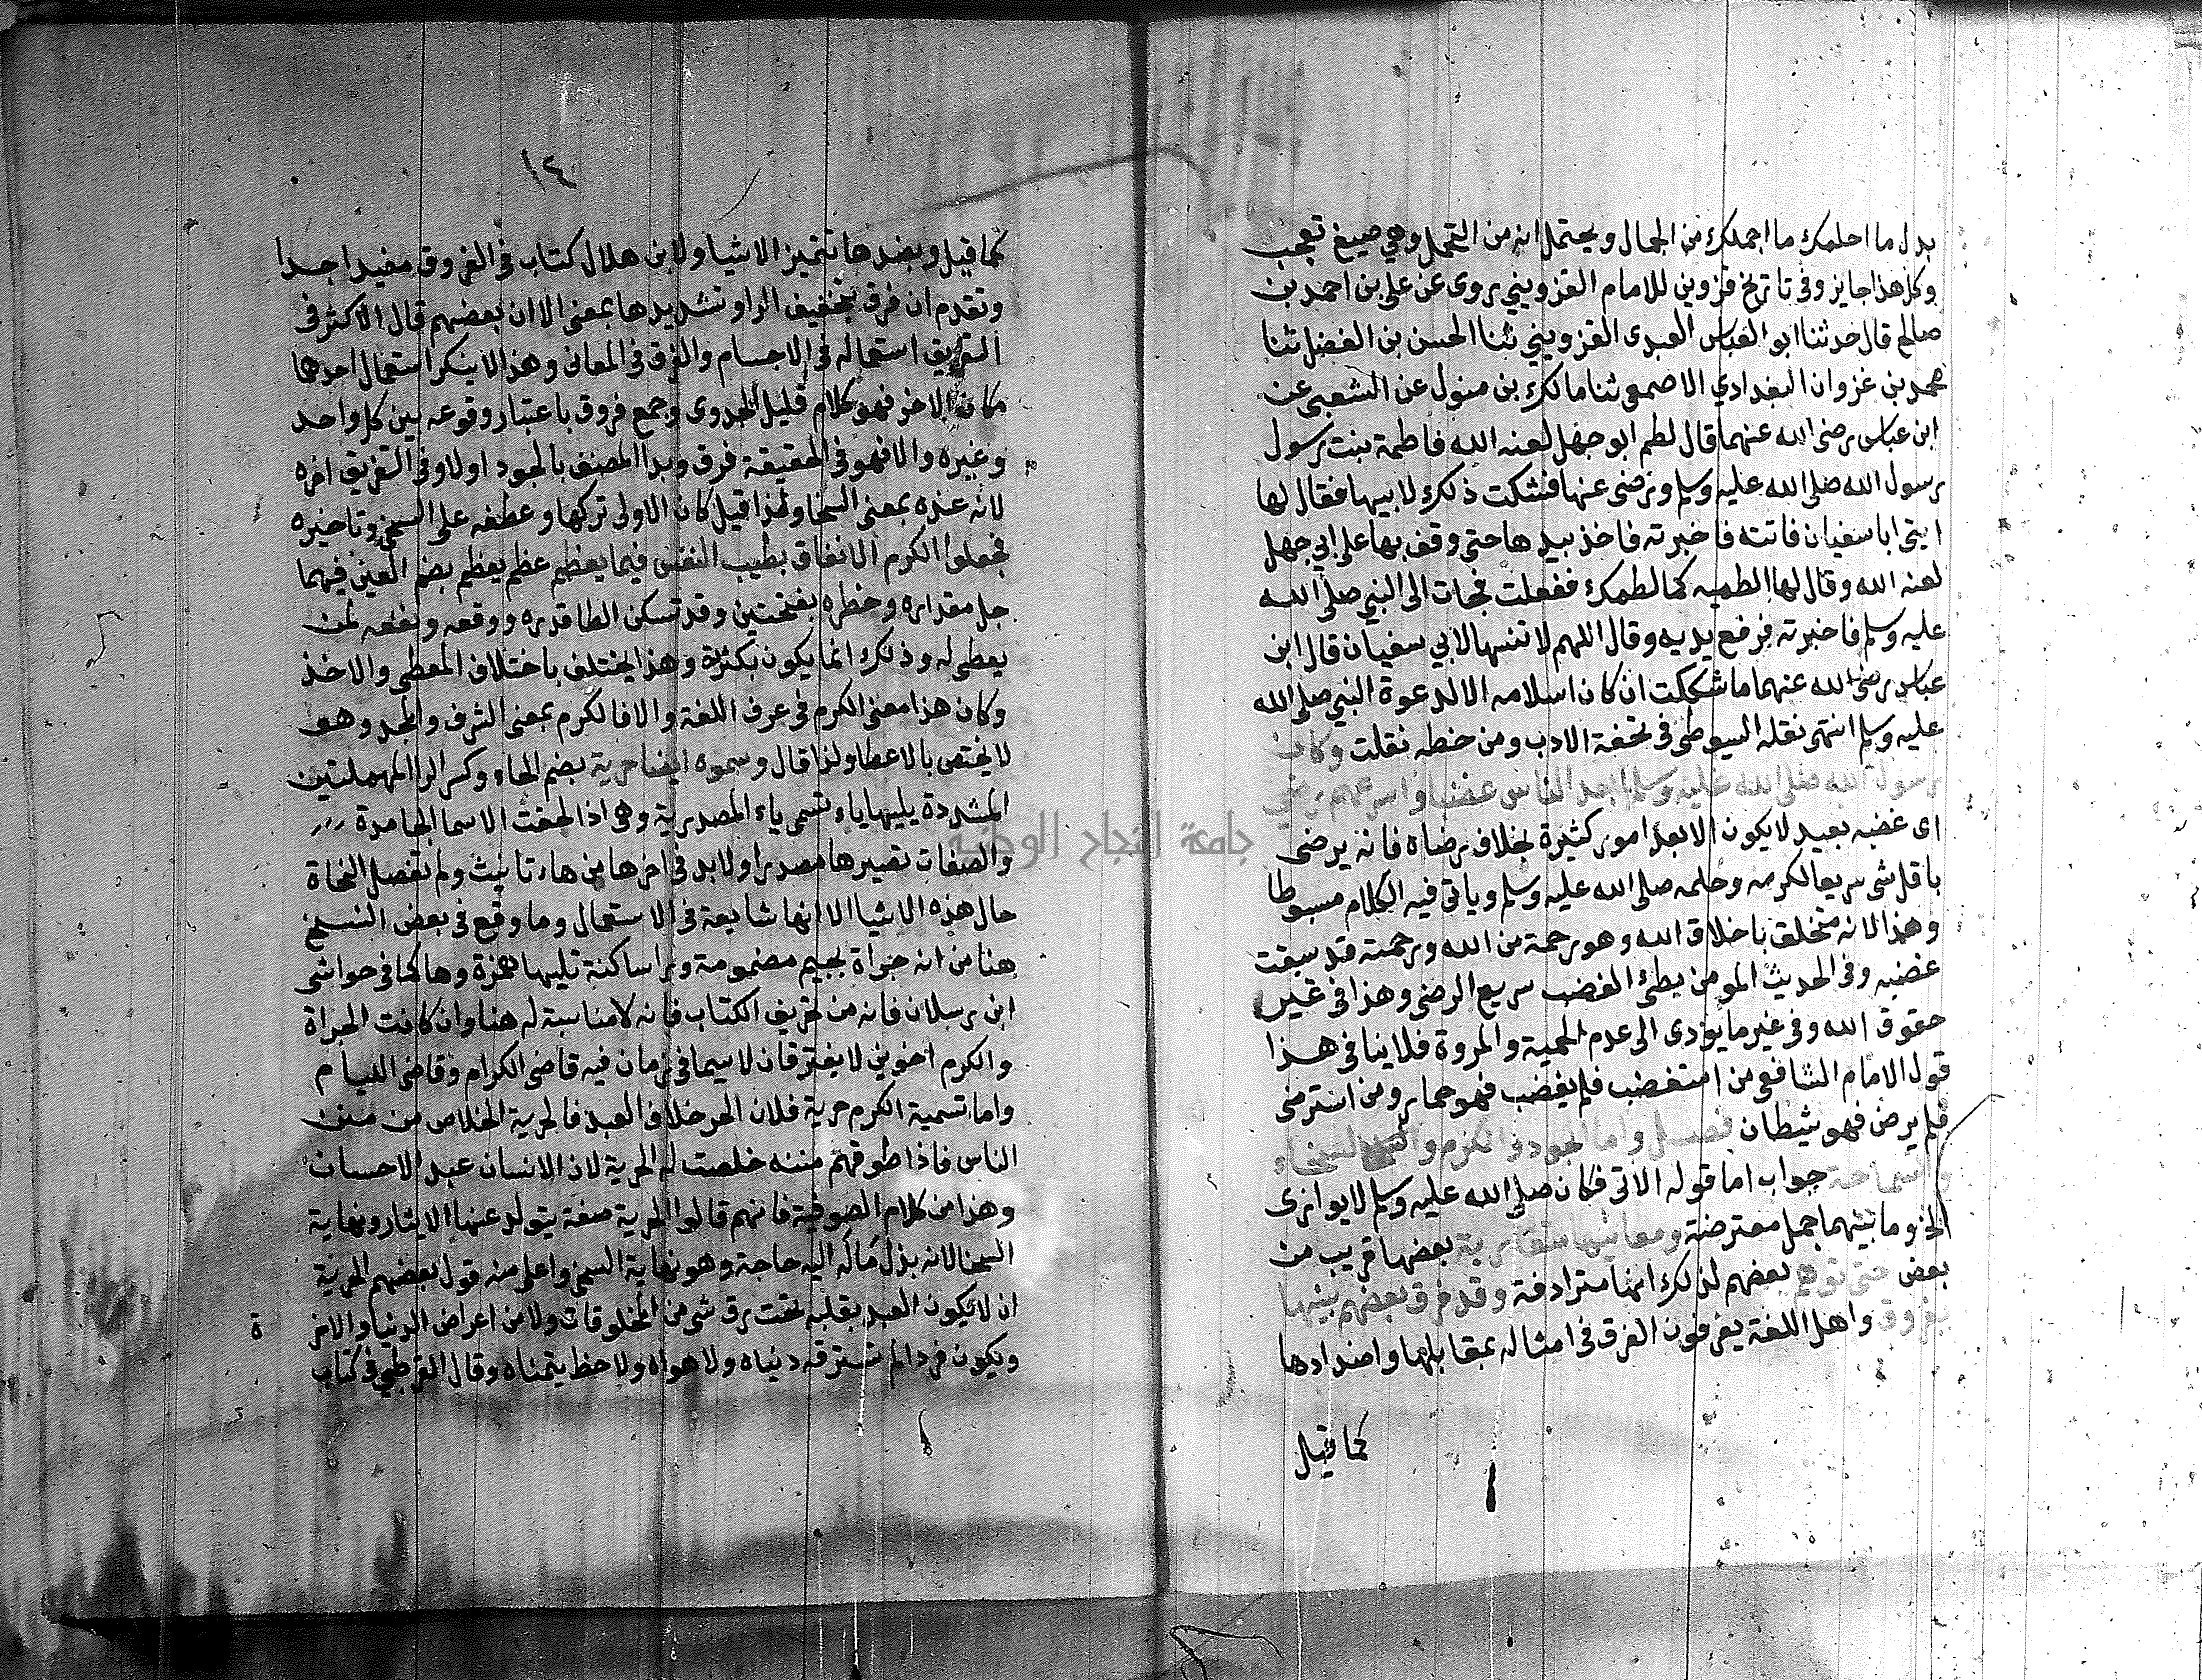 بدل ما احلمك ما اجملك من الجمال ويحتمل انه من التحمل وهي صيغ تعجب
وكل هذا جايز وفى تاريخ قزوين للامام القزويني يروى عن على بن احمد بن
صالح قال حدثنا ابو العباس العبدى القزويني ثنا الحسن بن الفضل ثنا
محمد بن غزوان البغدادي الاصمعى ثنا مالك بن منول عن الشعبى عن
ابن عباس رضى الله عنهما قال لطم ابو جهل لعنه الله فاطمة بنت رسول
رسول الله صلى الله عليه وسلم ورضى عنها فشكت ذلك لابيها فقال لها
ايتى ابا سفيان فاتته فاخبرته فاخذ بيدها حتى وقف بها على ابي جهل
لعنه الله وقال لها الطميه كما لطمك ففعلت فجات الى النبي صلى الله
عليه وسلم فاخبرته فرفع يديه وقال اللهم لا تنسها لابي سفيان قال ابن
عباس رضى الله عنهما ما شككت ان كان اسلامه الا لدعوة النبي صلى الله
عليه وسلم انتهى نقله السيوطى فى تحفة الادب ومن خطه نقلت وكان
رسول الله صلى الله عليه وسلم ابعد الناس غضبا واسرعهم رضى
اى غضبه بعيد لا يكون الا بعد امور كثيرة بخلاف رضاه فانه يرضى
باقل شى سريعا لكرمه وحلمه صلى الله عليه وسلم وياتى فيه الكلام مبسوطا
وهذا لانه متخلق باخلاق الله وهو رحمة من الله ورحمته قد سبقت
غضبه وفى الحديث المومن بطئ الغضب سريع الرضى وهذا فى غير
حقوق الله وفى غير ما يؤدى الى عدم الحمية والمروة فلا ينافى هذا
قول الامام الشافعى من استغضب فلم يغضب فهو حمار ومن استرضى
فلم يرض فهو شيطان فصل واما الجود والكرم والسخاء
والسماحة جواب اما قوله الاتى فكان صلى الله عليه وسلم لا يوازى
الخ وما بينهما جمل معترضة ومعانيها متقاربة بعضها قريب من
بعض حتى توهم بعضهم لذلك انها مترادفة وقد فرق بعضهم بينها
بفروق واهل اللغة يعرفون الفرق فى امثاله بمقابلها واضدادها
كما قيل
١٤
كما قيل وبضدها تتميز الاشيا ولابن هلال كتاب فى الفروق مفيد اجدا
وتقدم ان فرق بتخفيف الرا وتشديدها بمعنى الا ان بعضهم قال الاكثر فى
التفريق استعماله فى الاجسام والفرق فى المعانى وهذا لا ينكر استعمال احدها
مكان الاخر فهو كلام قليل الجدوى وجمع فروق باعتبار وقوعه بين كل واحد
وغيره والا فهو فى الحقيقة فرق وبدا المصنف بالجود اولا وفى التفريق اخره
لانه عنده بمعنى السخا ولهذا قيل كان الاولى تركها وعطفه على السخى وتاخيره
فجعلوا الكرم الانفاق بطيب النفس فيما يعظم عظم يعظم بضم العين فيهما
جل مقداره وخطره بفتحتين وقد تسكن الطا قدره ووقعه ونفعه لمن
يعطى له وذلك انما يكون بكثرة وهذا يختلف باختلاف المعطى والاخذ
وكان هذا معنى الكرم فى عرف اللغة والا فالكرم بمعنى الشرف والمجد وهو
لا يختص بالاعطا ولذا قال وسموه ايضا حرية بضم الحاء وكسر الرا المهملتين
المشددة يليها ياء تسمى ياء المصدرية وهى اذا لحقت الاسما الجامدة
والصفات تصيرها مصدرا ولا بد فى اخرها من هاء تانيث ولم تفصل النحاة
حال هذه الاشيا الا انها شايعة فى الاستعمال وما وقع فى بعض النسخ
هنا من انه جراة بجيم مضمومة ورا ساكنة تليها همزة وها كما فى حواشى
ابن رسلان فانه من تحريف الكتاب فانه لا مناسبة له هنا وان كانت الجراة
والكرم اخوين لا يفترقان لا سيما فى زمان فيه قاضى الكرام وقاضى الليام
واما تسمية الكرم حرية فلان الحر خلاف العبد فالحرية الخلاص من منن
الناس فاذا طوقهم مننه خلصت له الحرية لان الانسان عبد الاحسان
وهذا من كلام الصوفية فانهم قالوا الحرية صفة يتولد عنها الايثار ونهاية
السخا لانه بذل ماله اليه حاجة وهو نهاية السخى واعلى منه قول بعضهم الحرية
ان لا يكون العبد بقلبه تحت رق شى من المخلوقات ولا من اعراض الدنيا والاخر
ة
ويكون فردا لم تسترقه دنياه ولا هواه ولا حظ يتمناه وقال القرطبي فى كتاب
جامعة النجاح الوطنية